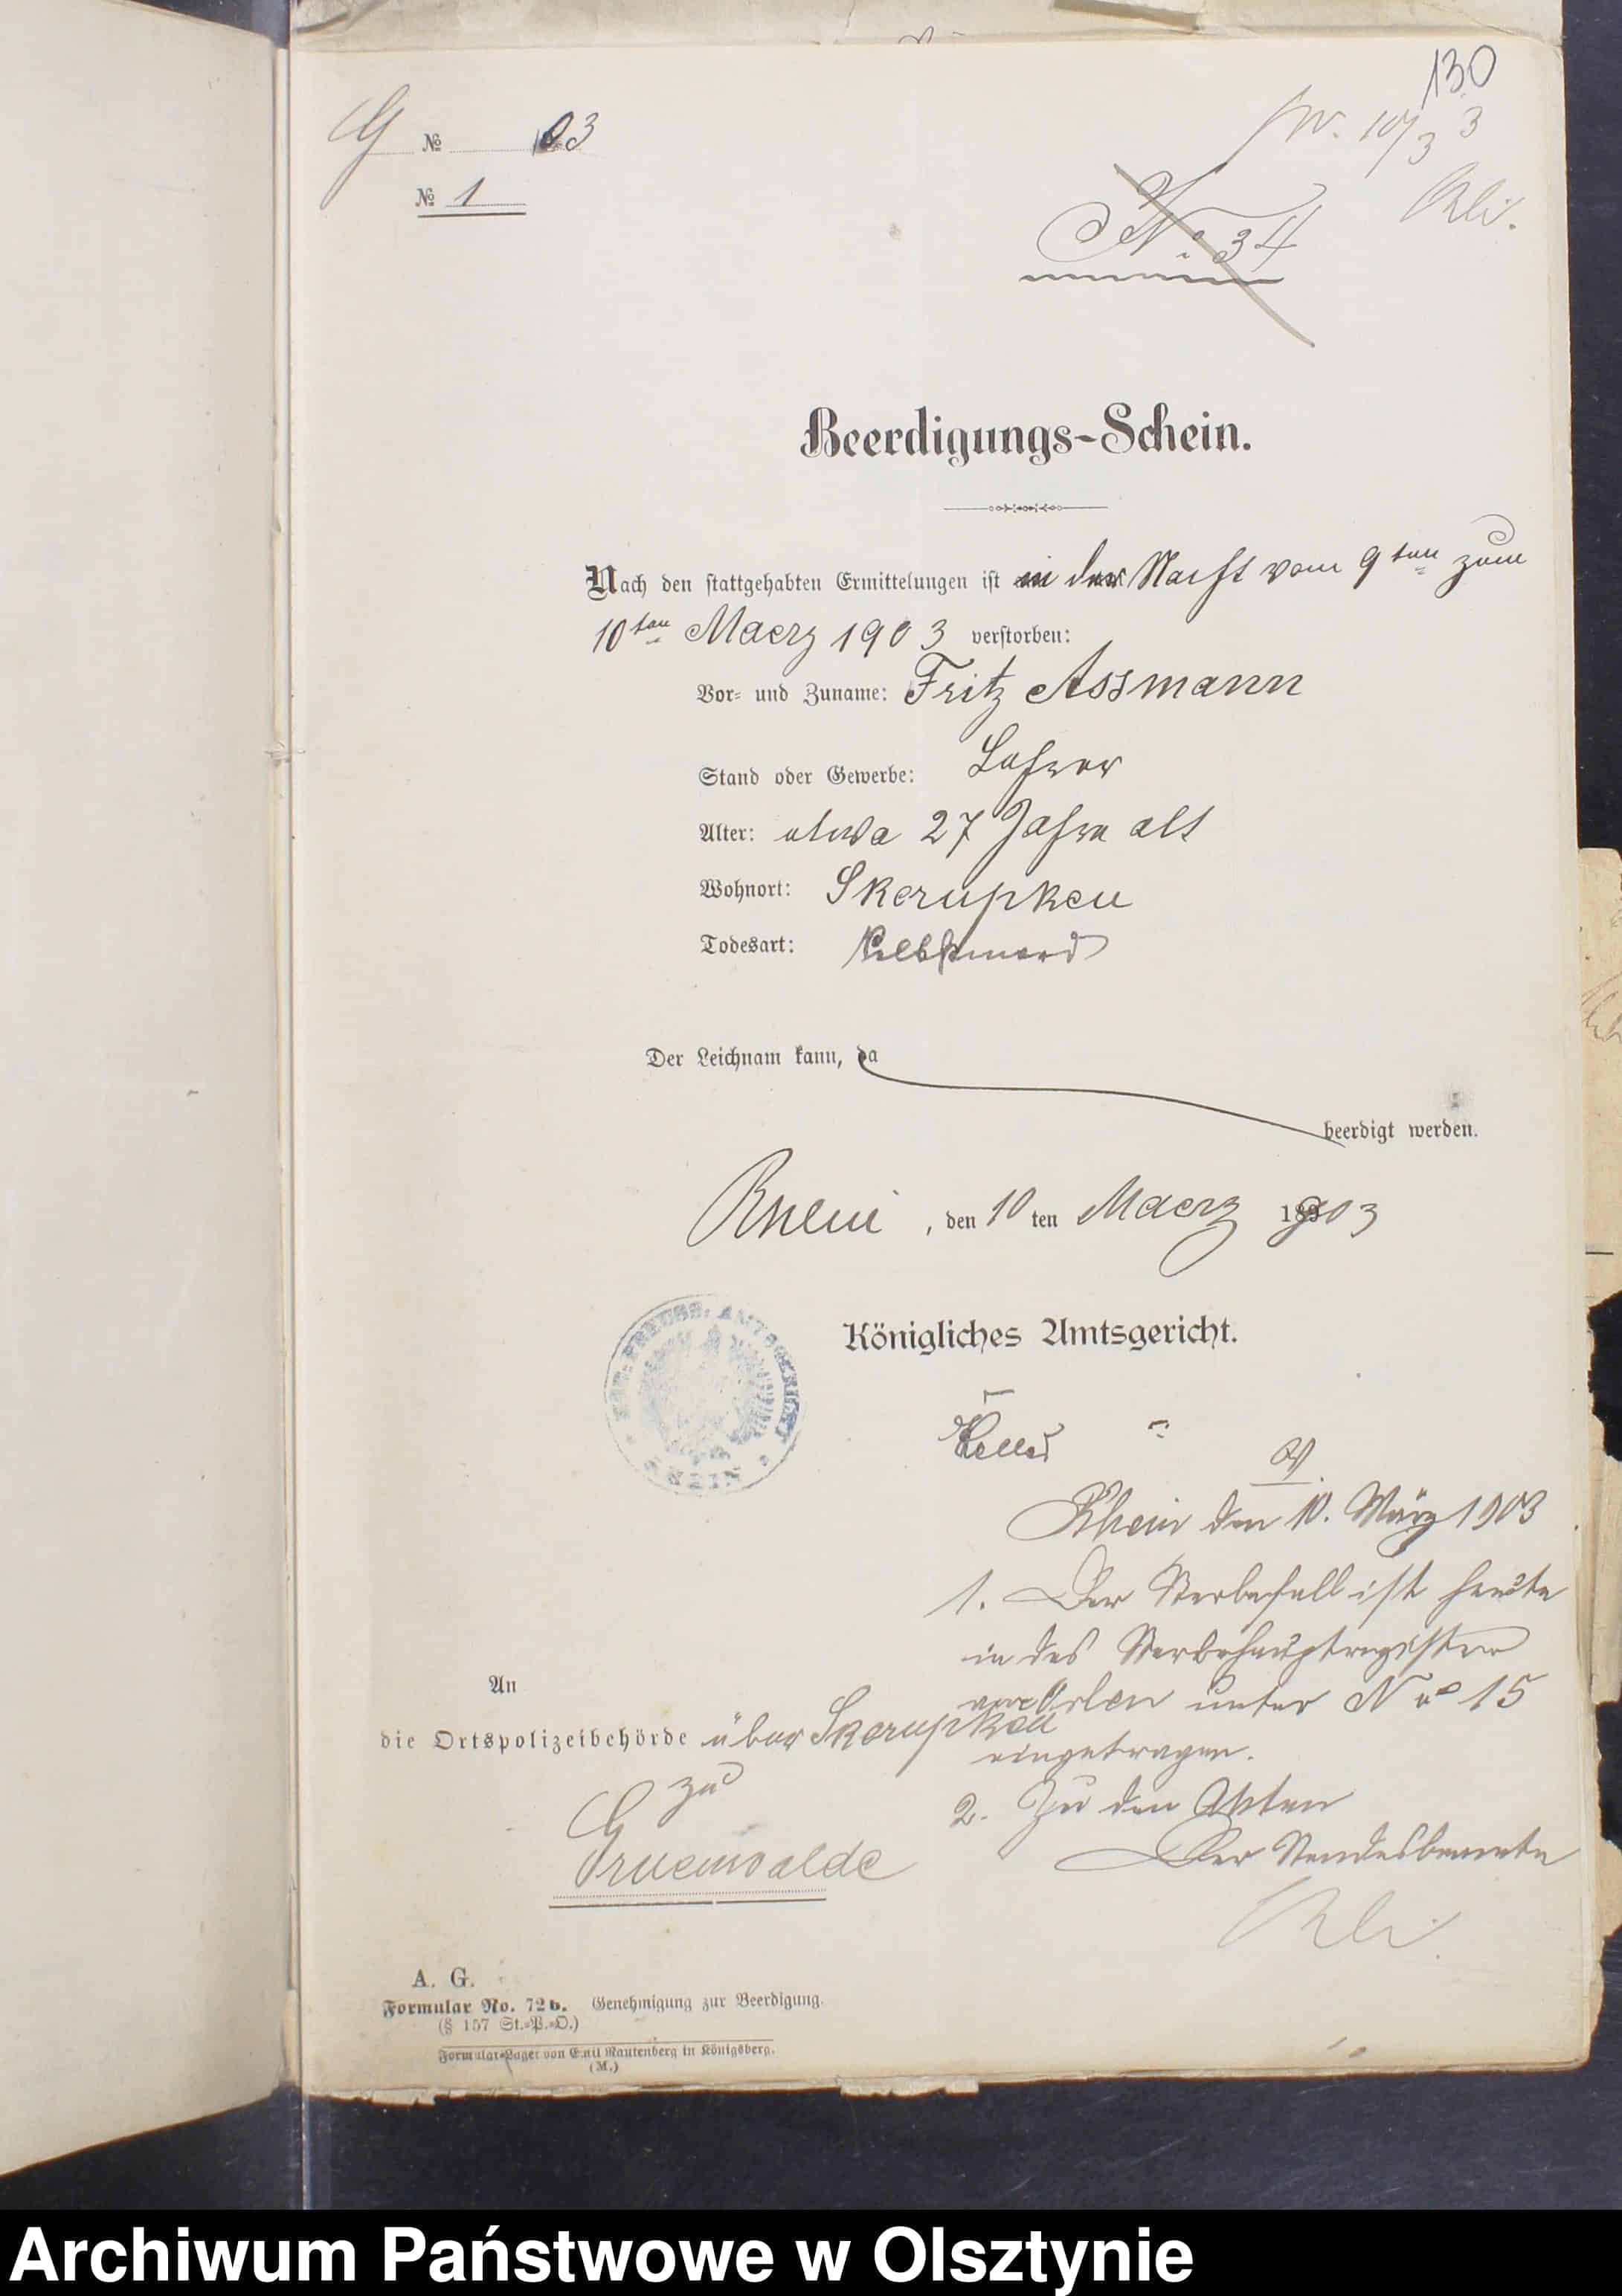 130
G № 03
pr. 10/3 3
№ 1
№ 34
Beerdigungs-Schein.
Nach den stattgehabten Ermittelungen ist in der Nacht vom 9ten zum
10ten Maerz 1903 verstorben:
Vor- und Zuname: Fritz Assmann
Stand oder Gewerbe: Lehrer
Alter: etwa 27 Jahre alt
Wohnort: Skerupken
Todesart: Selbstmord
Der Leichnam kann, da
beerdigt werden.
Rhein, den 10 ten Maerz 1903
Königliches Amtsgericht.
KGL. PREUSS. AMTSGERICHT
RHEIN
Rhein den 10. März 1903
1. Der Sterbefall ist heute
in das Sterbehauptregister
von Orlen unter No 15
eingetragen.
2. Zu den Akten
Der Standesbeamte
An
die Ortspolizeibehörde über Skerupken
zu
Gruenwalde
A. G.
Formular No. 72b. Genehmigung zur Beerdigung.
(§ 157 St.-P.-O.)
Formular-Lager von Emil Rautenberg in Königsberg.
(M.)
Archiwum Państwowe w Olsztynie